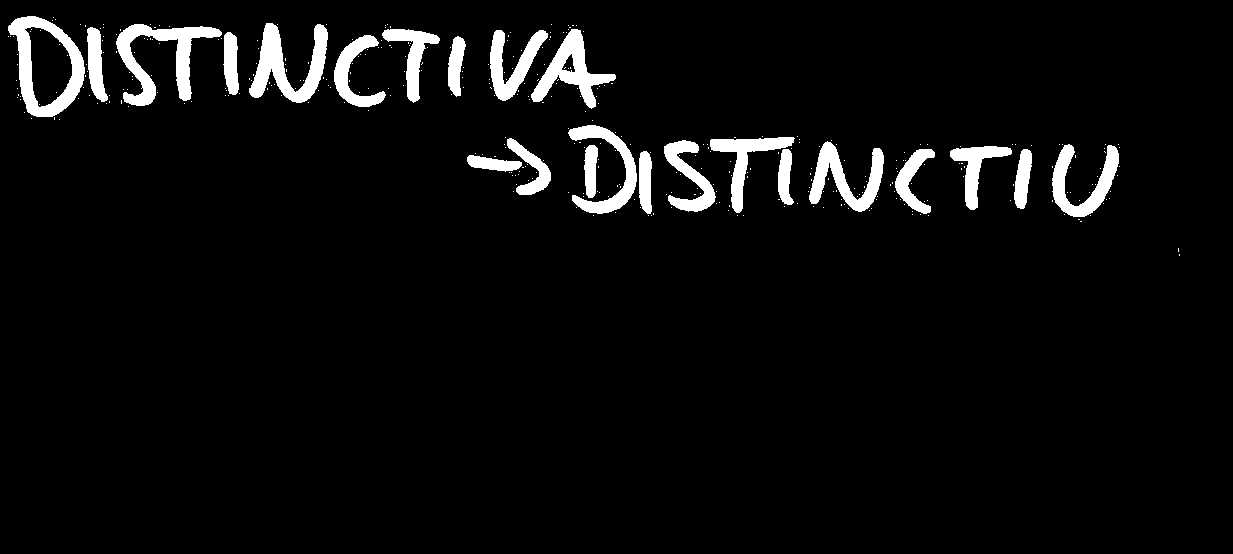 DISTINCTIVA
→ DISTINCTIU